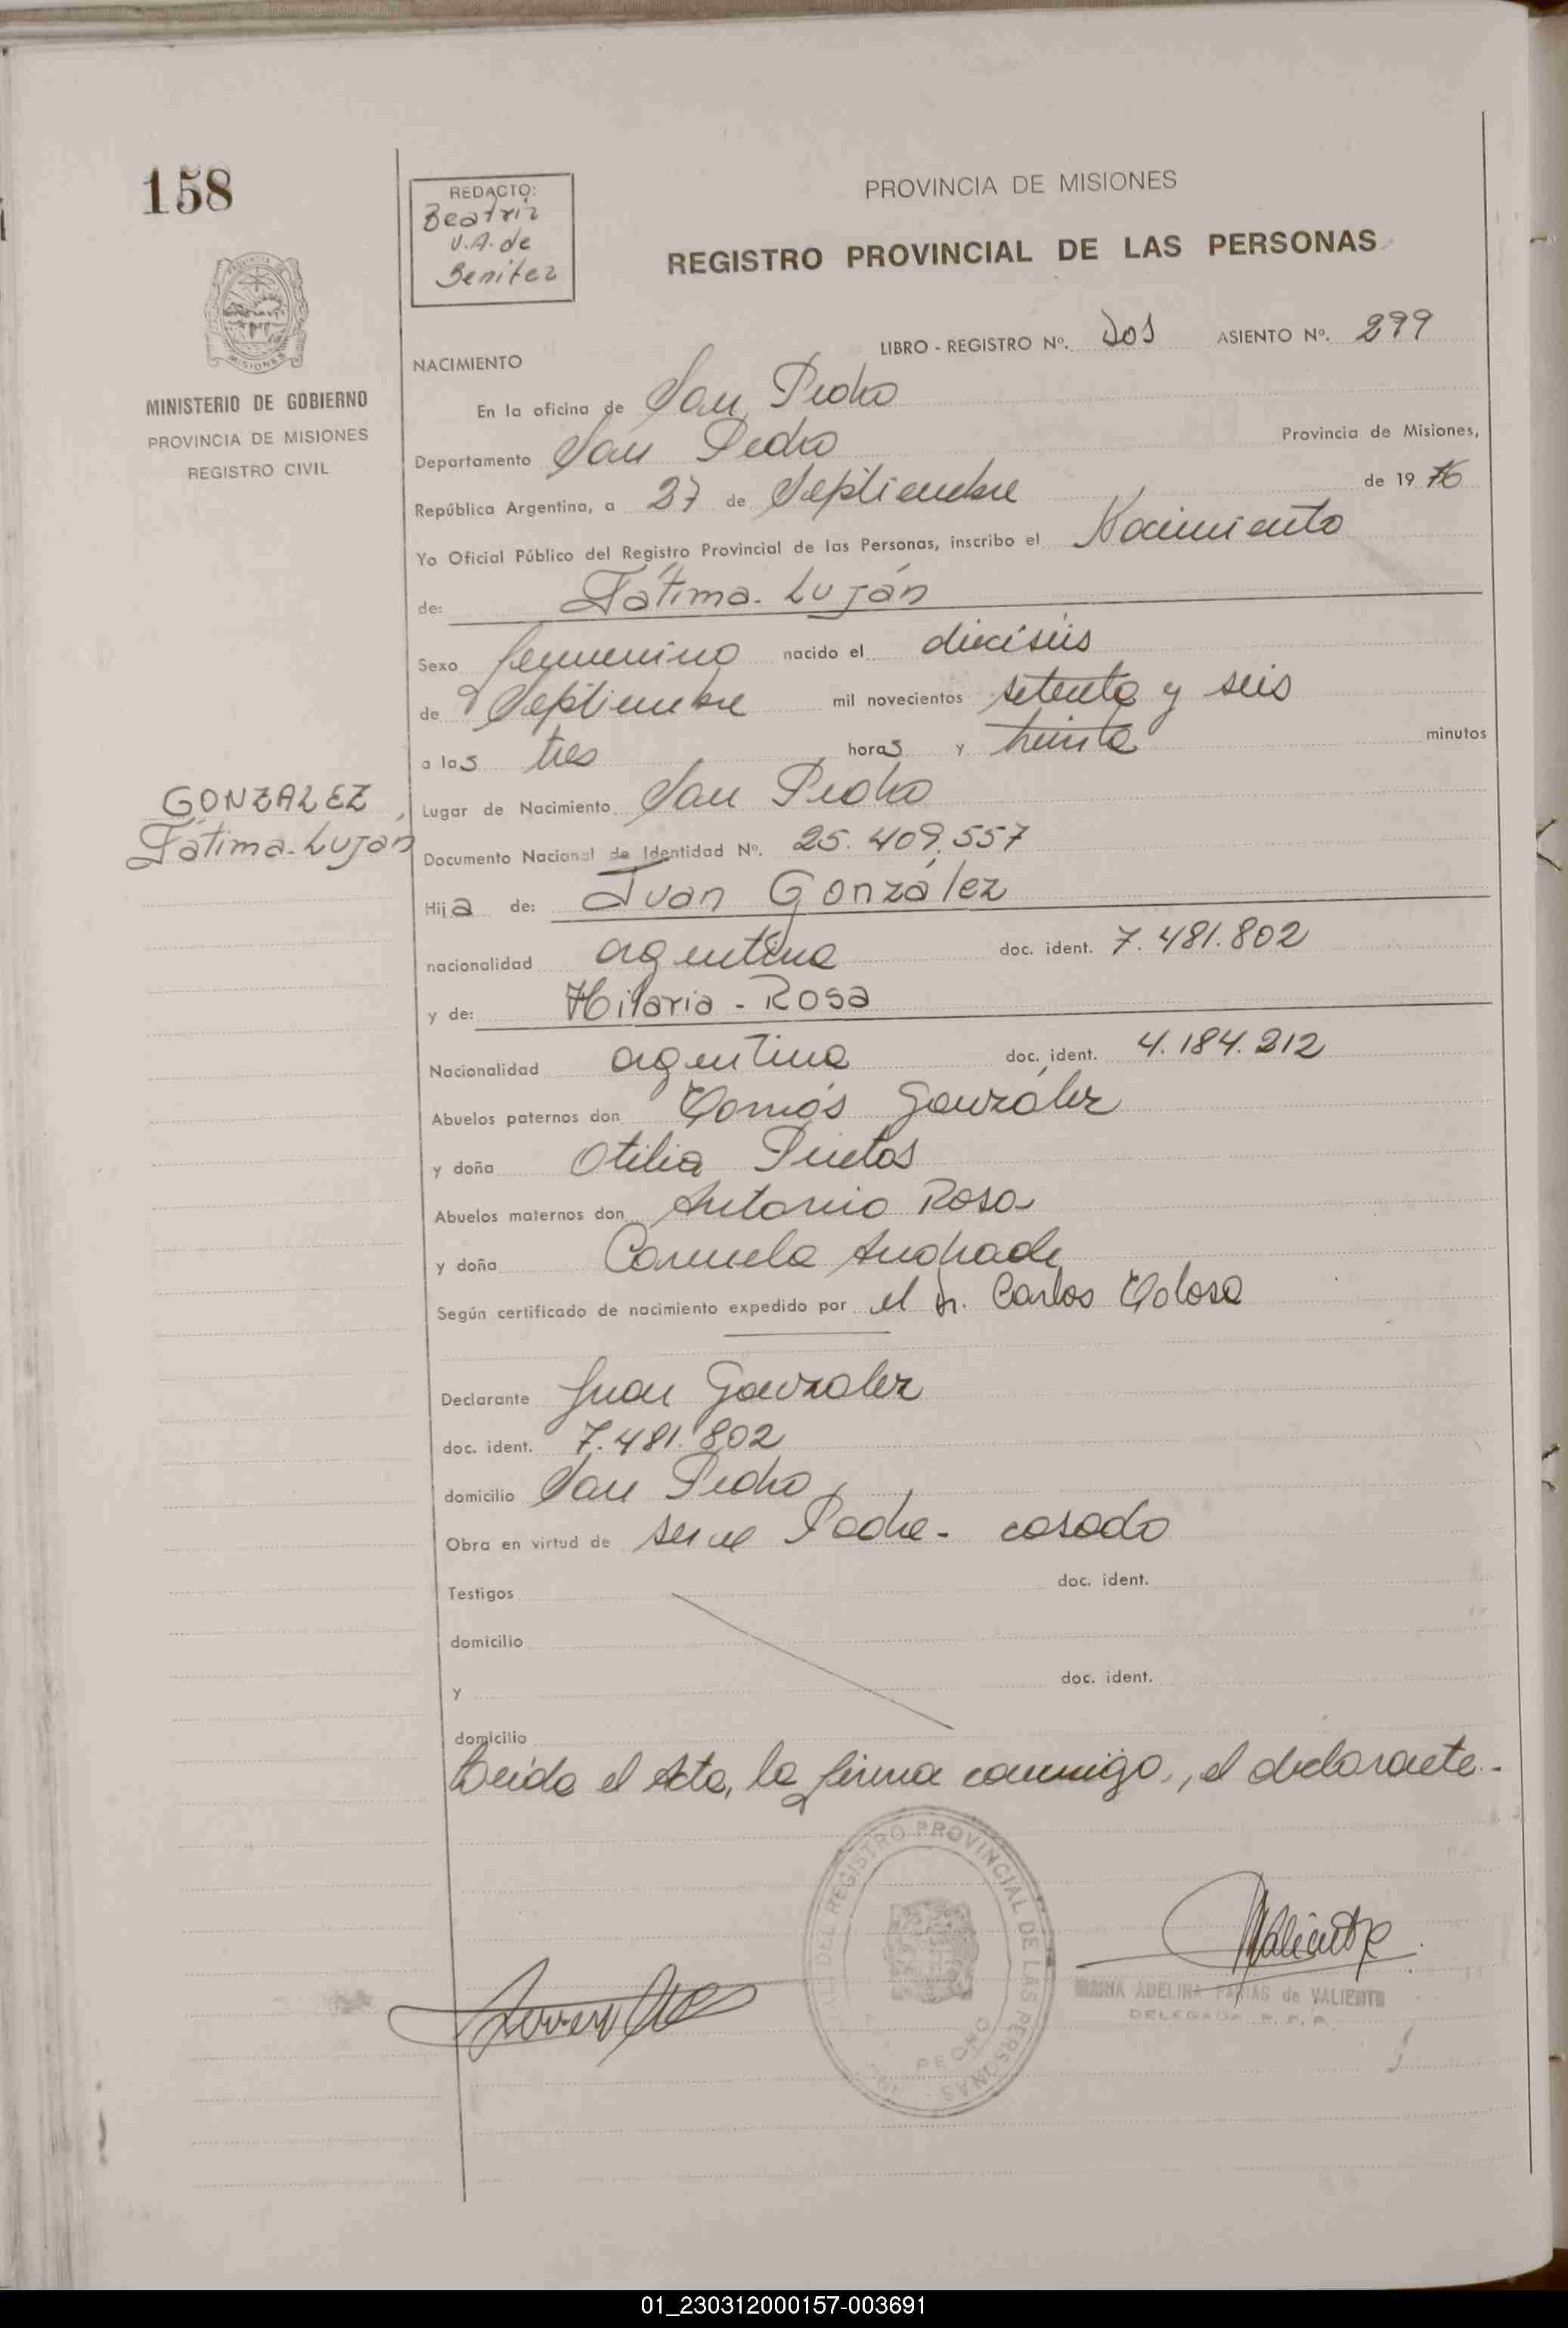 158
REDACTO:
Beatriz
V.A. de
Benitez
PROVINCIA DE MISIONES
REGISTRO PROVINCIAL DE LAS PERSONAS
PROVINCIA
MISIONES
MINISTERIO DE GOBIERNO
PROVINCIA DE MISIONES
REGISTRO CIVIL
LIBRO - REGISTRO Nº. Dos ASIENTO Nº. 299
NACIMIENTO
En la oficina de San Pedro
Departamento San Pedro Provincia de Misiones,
República Argentina, a 27 de Septiembre de 19 76
Yo Oficial Público del Registro Provincial de las Personas, inscribo el Nacimiento
de: Fátima - Luján
Sexo femenino nacido el dieciséis
de Septiembre mil novecientos setenta y seis
a las tres horas y treinta minutos
GONZALEZ,
Fátima - Luján
Lugar de Nacimiento San Pedro
Documento Nacional de Identidad Nº. 25.409.557
Hija de: Juan González
nacionalidad argentina doc. ident. 7.481.802
y de: Hilaria - Rosa
Nacionalidad argentina doc. ident. 4.184.212
Abuelos paternos don Tomás González
y doña Otilia Prietos
Abuelos maternos don Antonio Rosa
y doña Carmela Andrade
Según certificado de nacimiento expedido por el Dr. Carlos Tolosa
Declarante Juan González
doc. ident. 7.481.802
domicilio San Pedro
Obra en virtud de ser el Padre - casado
Testigos doc. ident.
domicilio
y doc. ident.
domicilio
Leída el Acta, la firma conmigo, el declarante.-
DEL REGISTRO PROVINCIAL DE LAS PERSONAS
PEDRO
Valiente
ADELINA FARIAS de VALIENTE
DELEGADA R. P. P.
01_230312000157-003691